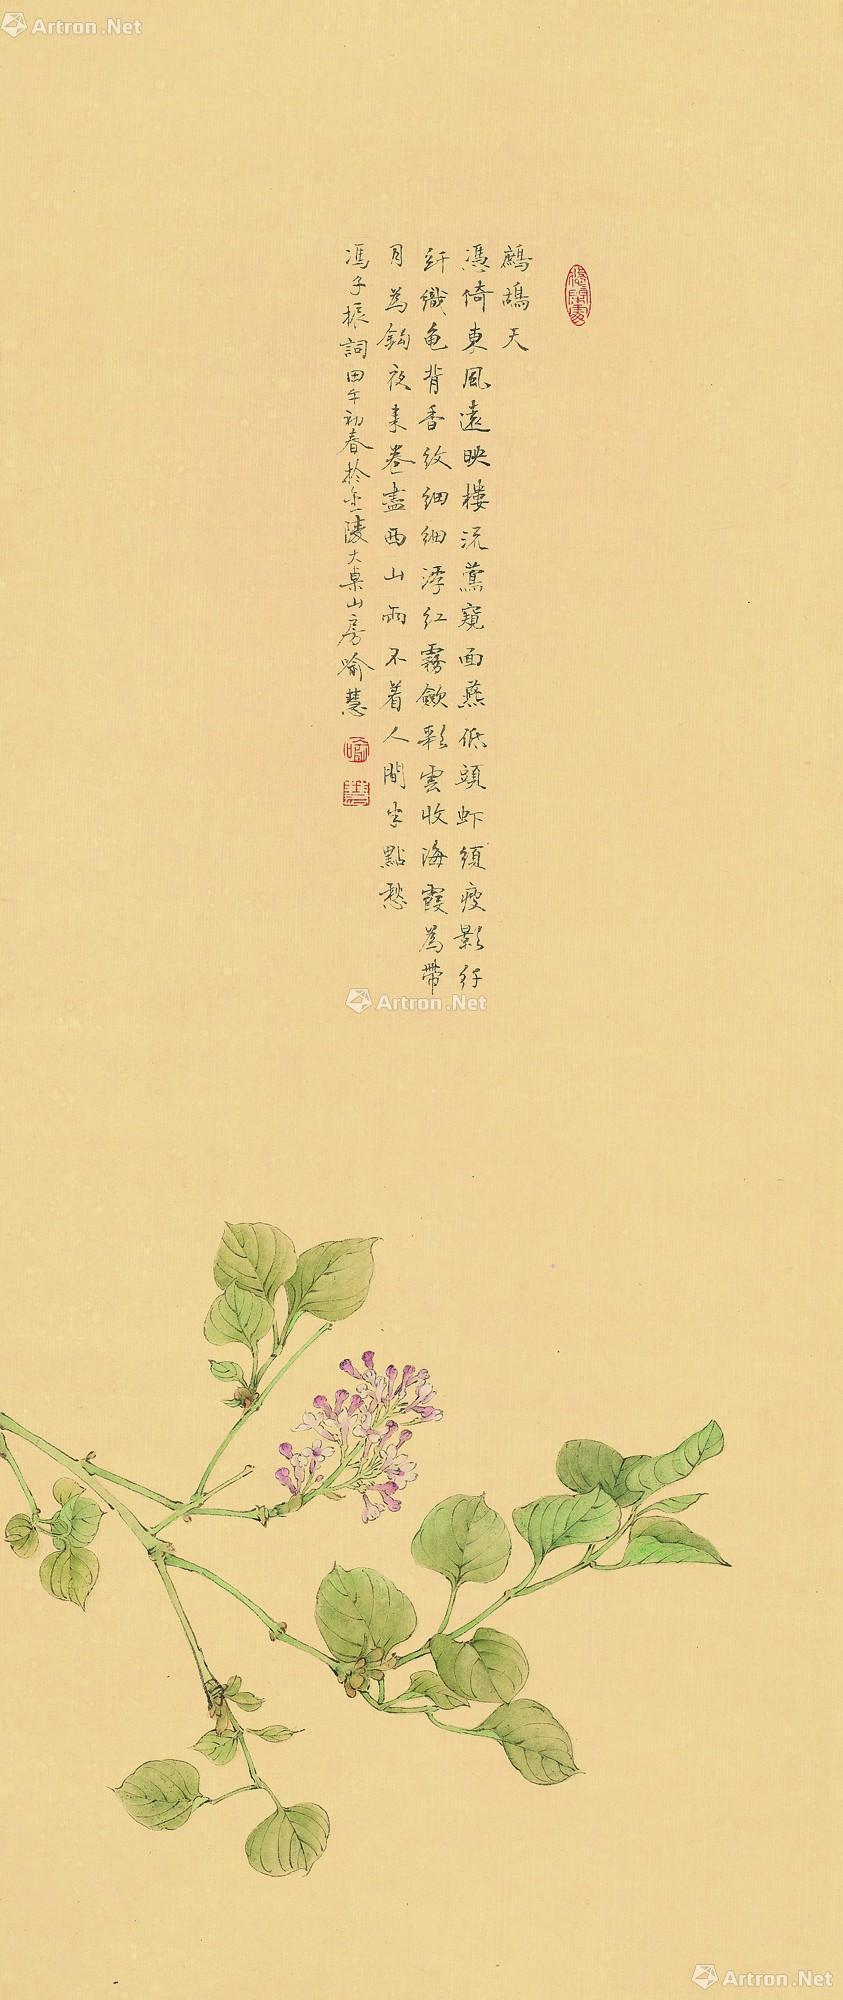 Artron.Net
鷓鴣天
憑倚東風遠映樓流鶯窺面燕低頭虾須瘦影纤
纤織龟背香紋細細浮红霧歛彩雲收海霞為帶
月為鈎夜来卷盡西山雨不着人間半點愁
馮子振詞甲午初春於金陵大桌山房喻慧
喻
慧
Artron.Net
Artron.Net